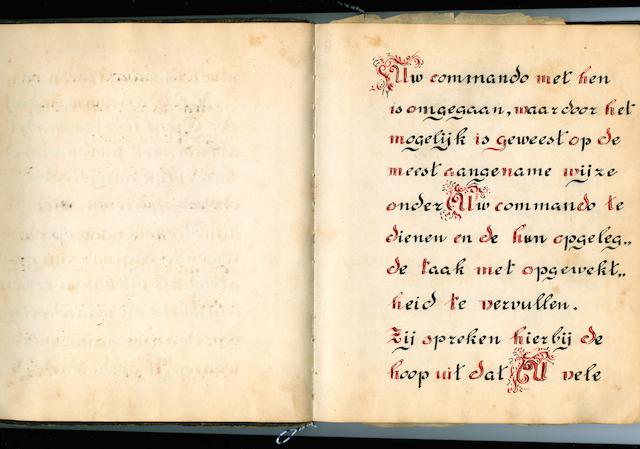 Uw commando met hen
is omgegaan, waardoor het
mogelijk is geweest op de
meest aangename wijze
onder Uw commando te
dienen en de hun opgeleg„
de taak met opgewekt„
heid te vervullen.
Zij spreken hierbij de
hoop uit dat U vele